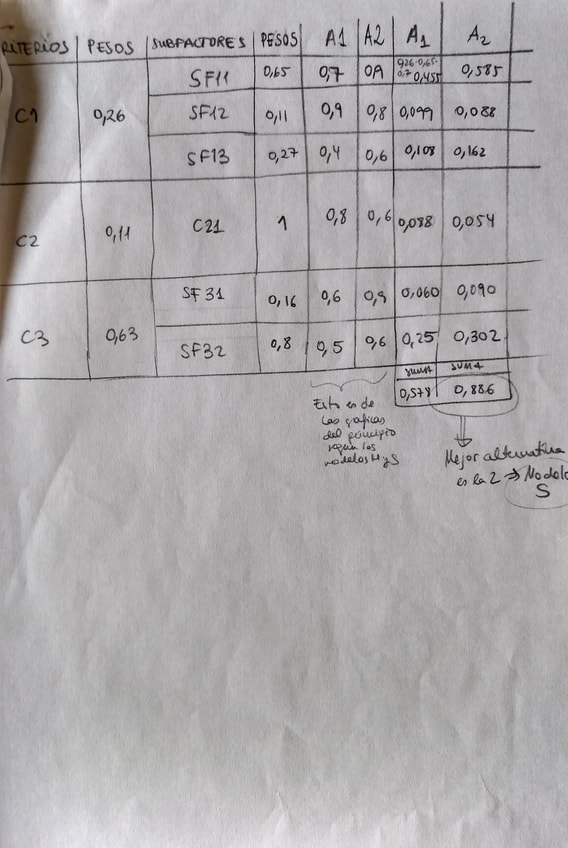 RITERIOS PESOS SUBFACTORES PESOS A1 A2 A1 A2
SF11 0,65 0,7 0,9 0,26·0,65· 0,585
0,7 0,455
C1 0,26 SF12 0,11 0,9 0,8 0,099 0,088
SF13 0,27 0,4 0,6 0,108 0,162
C2 0,11 C21 1 0,8 0,6 0,088 0,054
SF31 0,16 0,6 0,9 0,060 0,090
C3 0,63
SF32 0,8 0,5 0,6 0,25 0,302
SUMA SUMA
0,578 0,886
Esto es de
las gráficas
del principio
según los
modelos H y S
Mejor alternativa
es la 2 ⇒ Modelo
S